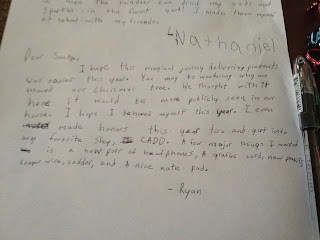 hope the reindeer can find my oats and
sparkles in the front yard. I made them myself
at school with my friends.
-Nathaniel
Dear Santa,
I hope this magical journy delivering products
was easier this year. You may be wondering why we
moved our Christmas tree. We thought with it
here it would be more publicly seen in our
house. I hope I behaved myself this year. I even
made honors this year too and got into
my favorite shop, CADD. A few major things I wanted
is a new pair of headphones, A grafics card, new pencils
copper wire, sodder, and A nice note pad.
-Ryan